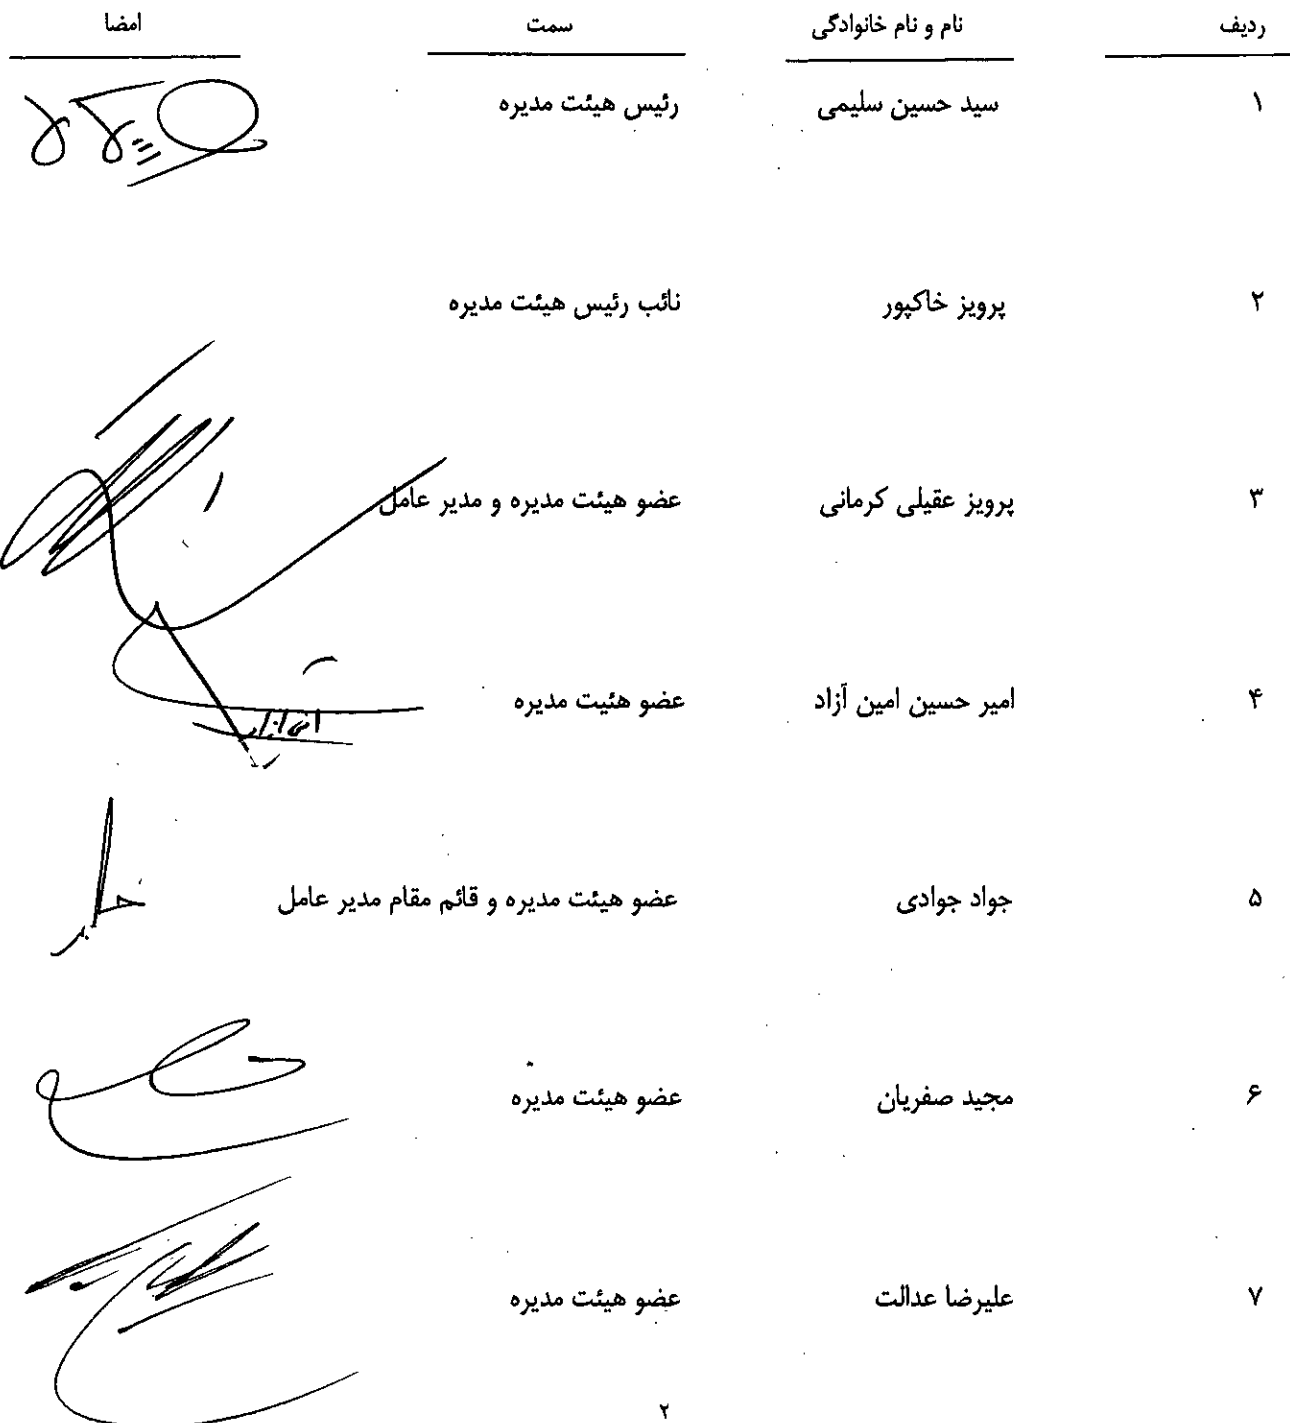 ردیف نام و نام خانوادگی سمت امضا
۱ سید حسین سلیمی رئیس هیئت مدیره
۲ پرویز خاکپور نائب رئیس هیئت مدیره
۳ پرویز عقیلی کرمانی عضو هیئت مدیره و مدیر عامل
۴ امیر حسین امین آزاد عضو هئیت مدیره
۵ جواد جوادی عضو هیئت مدیره و قائم مقام مدیر عامل
۶ مجید صفریان عضو هیئت مدیره
۷ علیرضا عدالت عضو هیئت مدیره
۲